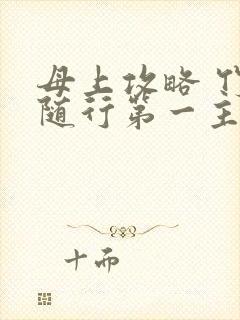 母上攻略
随行第一主
十而